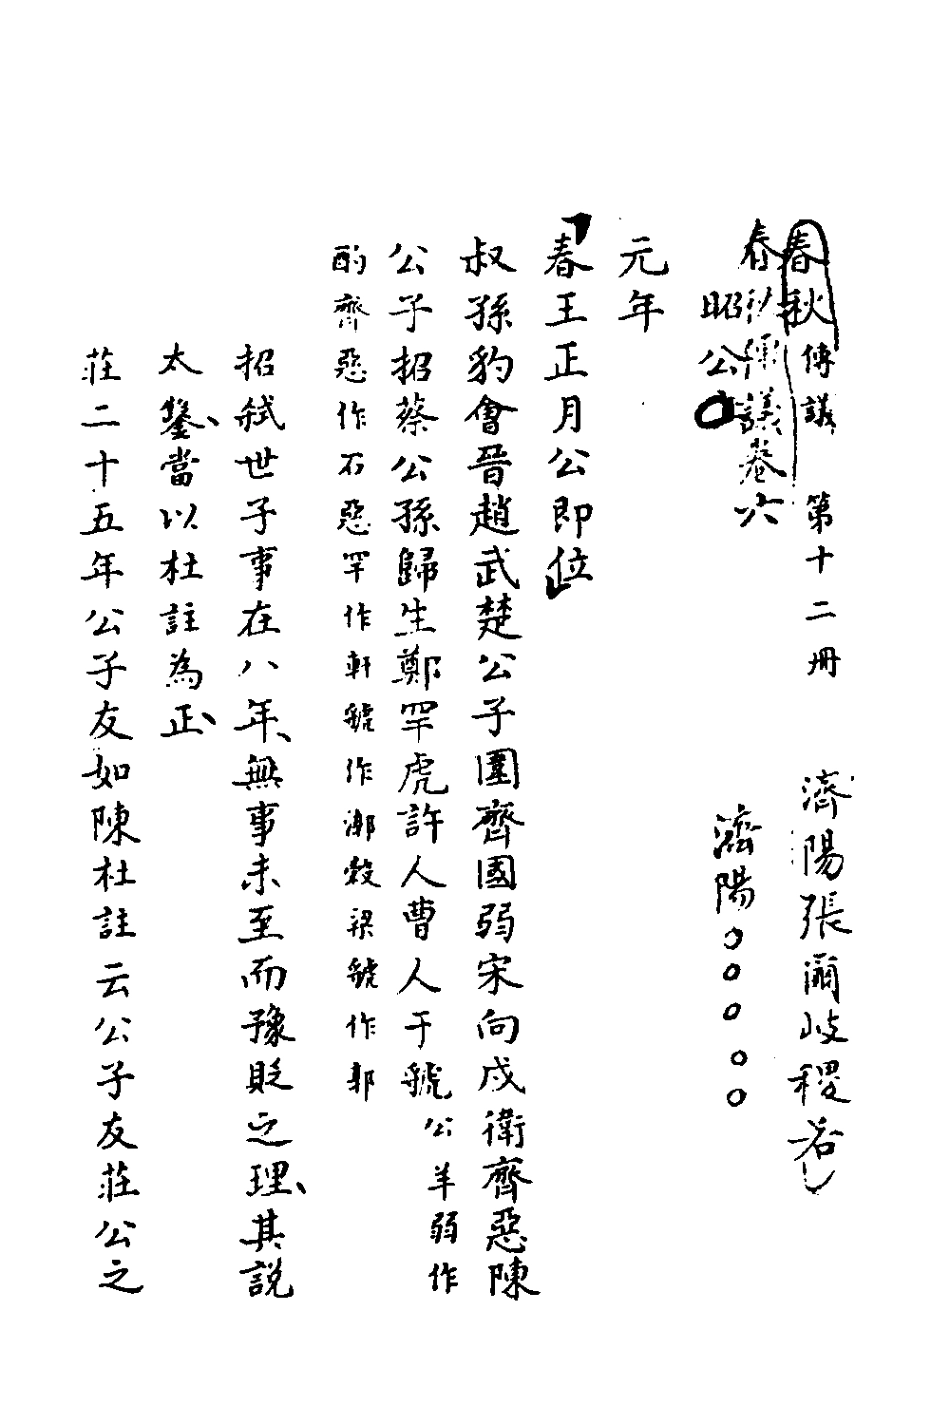 春秋傳議　第十二冊　濟陽張爾岐稷若
春秋傳議卷六　濟陽○○○○○
昭公
元年
春王正月公即位
叔孫豹會晉趙武楚公子圍齊國弱宋向戌衛齊惡陳
公子招蔡公孫歸生鄭罕虎許人曹人于虢公羊弱作
酌齊惡作石惡罕作軒虢作漷穀梁虢作郭
招弒世子事在八年、無事未至而豫貶之理、其説
太鑿、當以杜註為正、
莊二十五年公子友如陳杜註云公子友莊公之